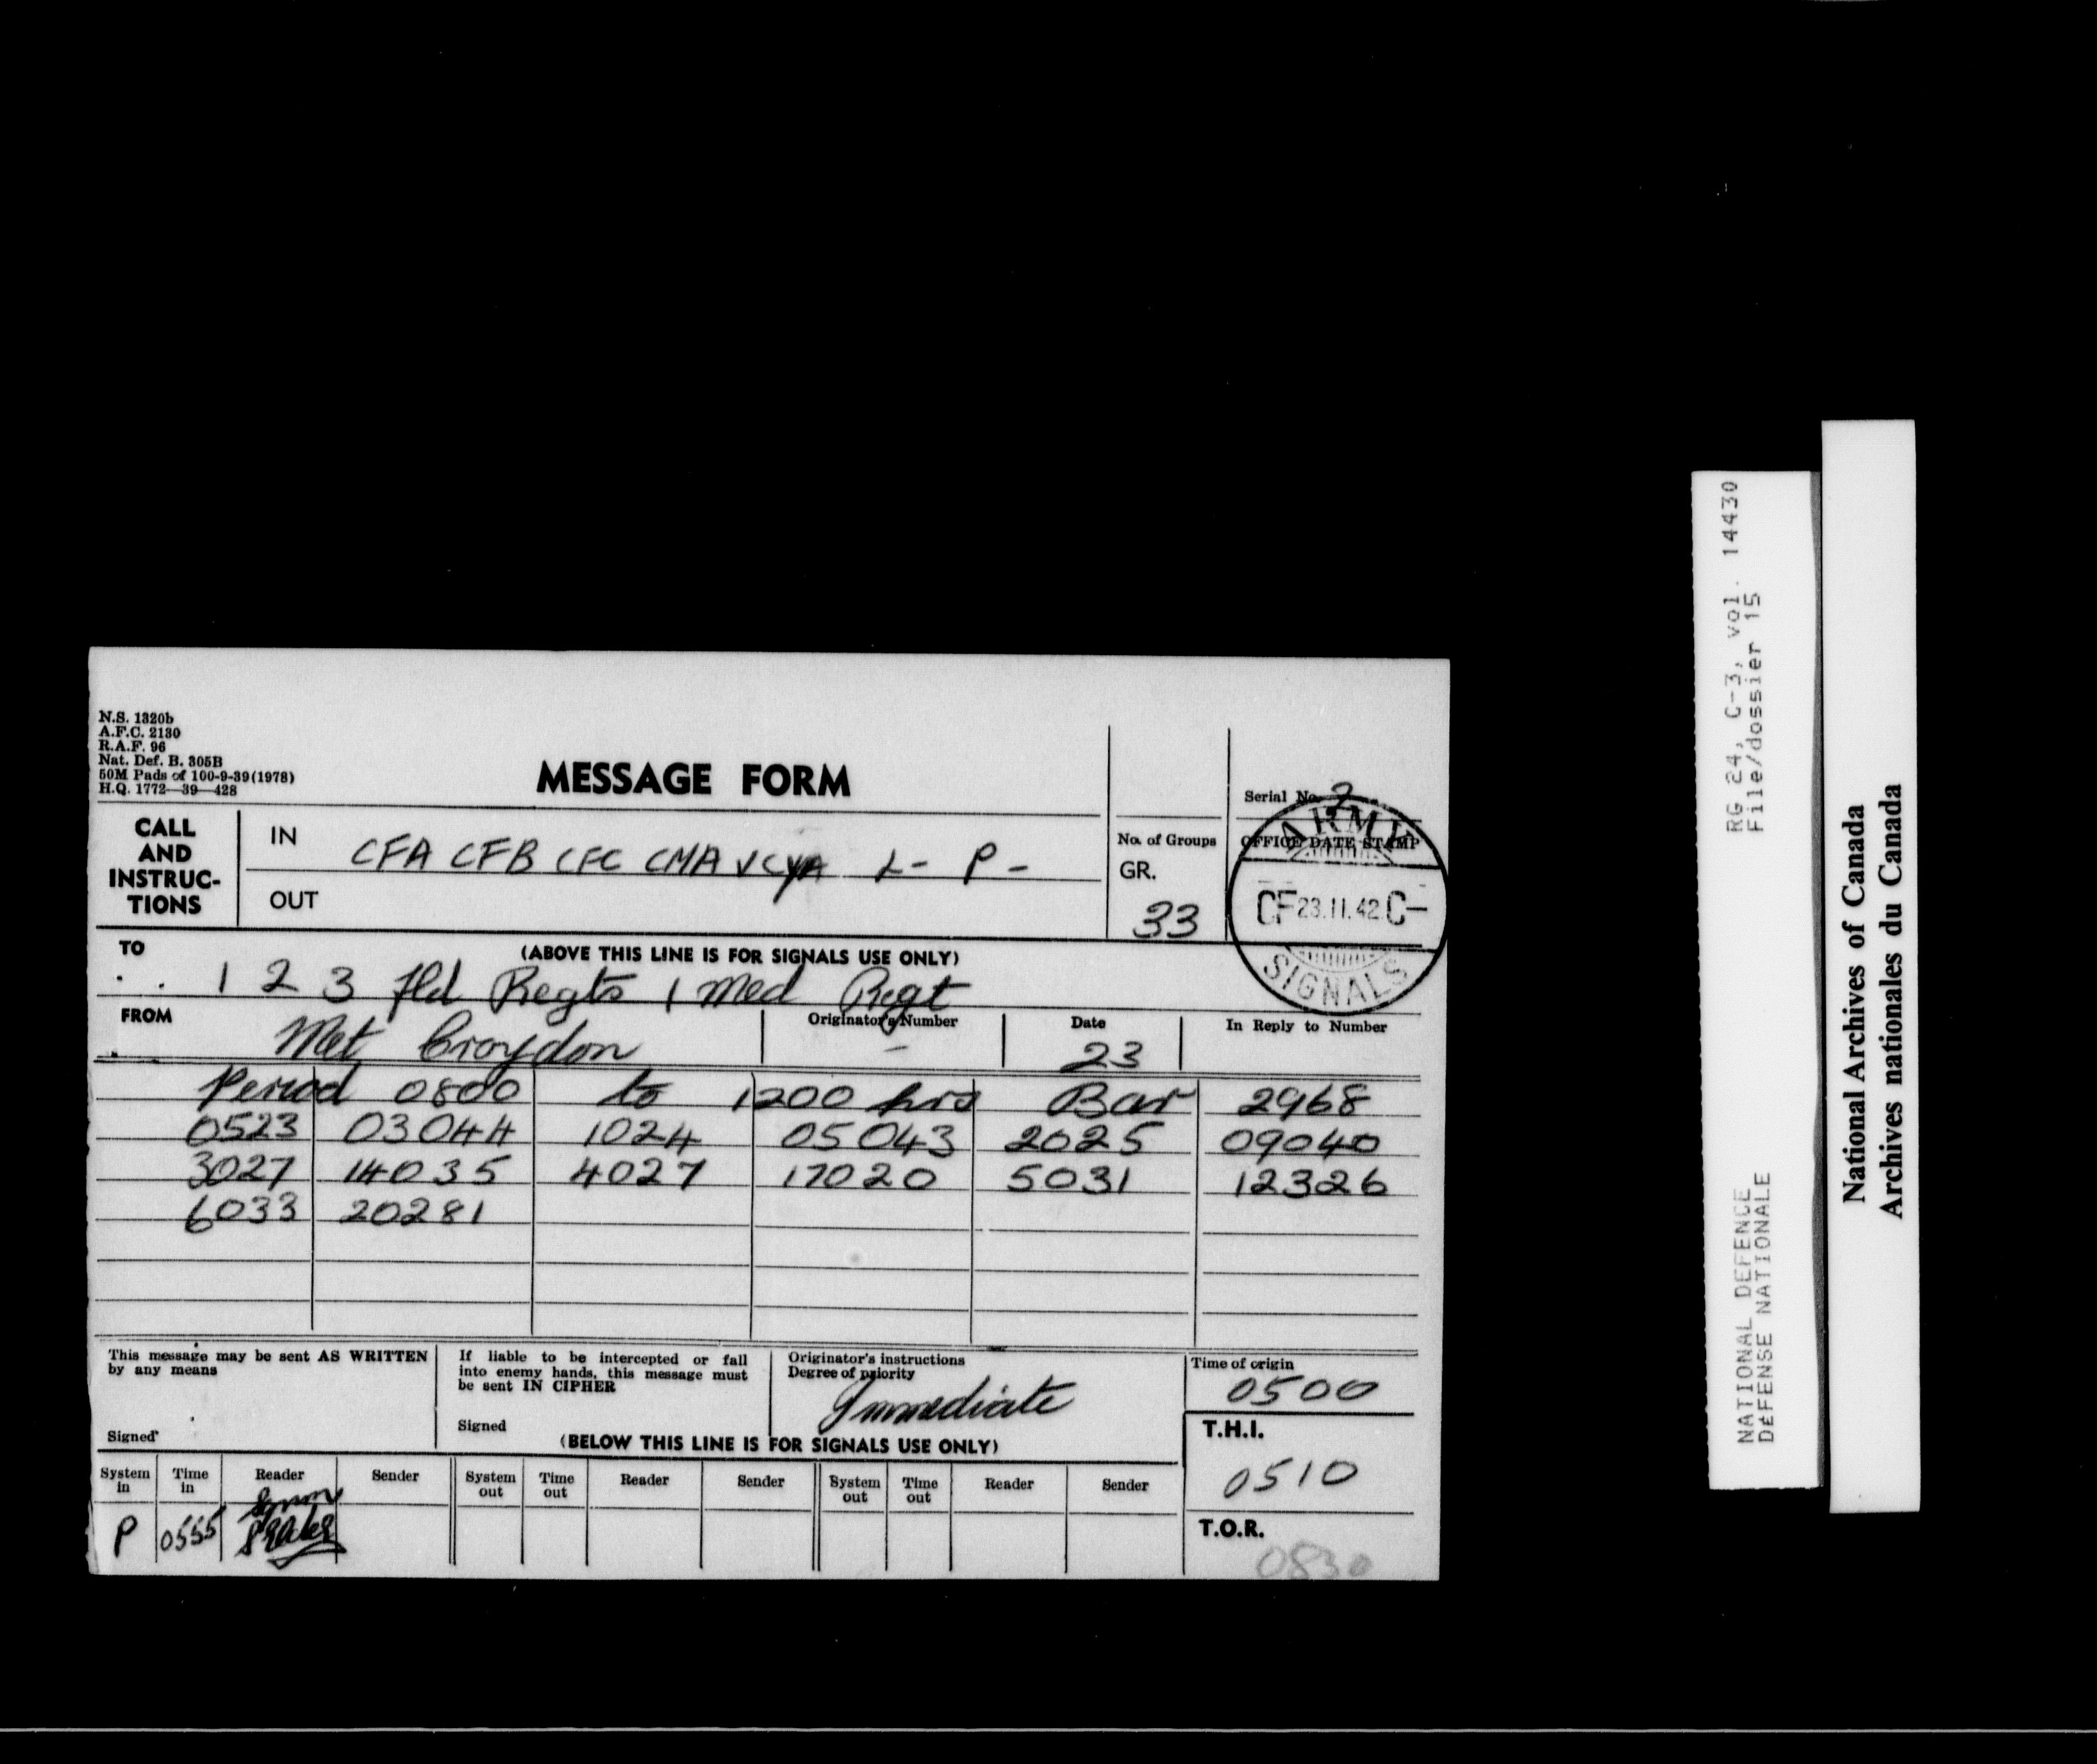 N.S. 1320b
A.F.C. 2130
R.A.F. 96
Nat. Def. B. 305B
50M Pads of 100-9-39(1978)
H.Q. 1772—39—428
MESSAGE FORM
Serial No. 2
CALL AND INSTRUC-TIONS
IN
CFA CFB CFC CMA V CYA L- P-
OUT
No. of Groups
GR.
33
OFFICE DATE STAMP
ARMY
CF 23.11.42 C-
SIGNALS
(ABOVE THIS LINE IS FOR SIGNALS USE ONLY)
TO
1 2 3 fld Regts 1 Med Regt
FROM
Met Croydon
Originator's Number
-
Date
23
In Reply to Number
Period 0800 to 1200 hrs Bar 2968
0523 03044 1024 05043 2025 09040
3027 14035 4027 17020 5031 12326
6033 20281
This message may be sent AS WRITTEN
by any means
Signed
If liable to be intercepted or fall
into enemy hands, this message must
be sent IN CIPHER
Signed
Originator's instructions
Degree of priority
Immediate
Time of origin
0500
(BELOW THIS LINE IS FOR SIGNALS USE ONLY)
T.H.I.
0510
System in Time in Reader Sender System out Time out Reader Sender System out Time out Reader Sender
P 0555
T.O.R.
0830
RG 24, C-3, vol. 14430
File/dossier 15
NATIONAL DEFENCE
DÉFENSE NATIONALE
National Archives of Canada
Archives nationales du Canada